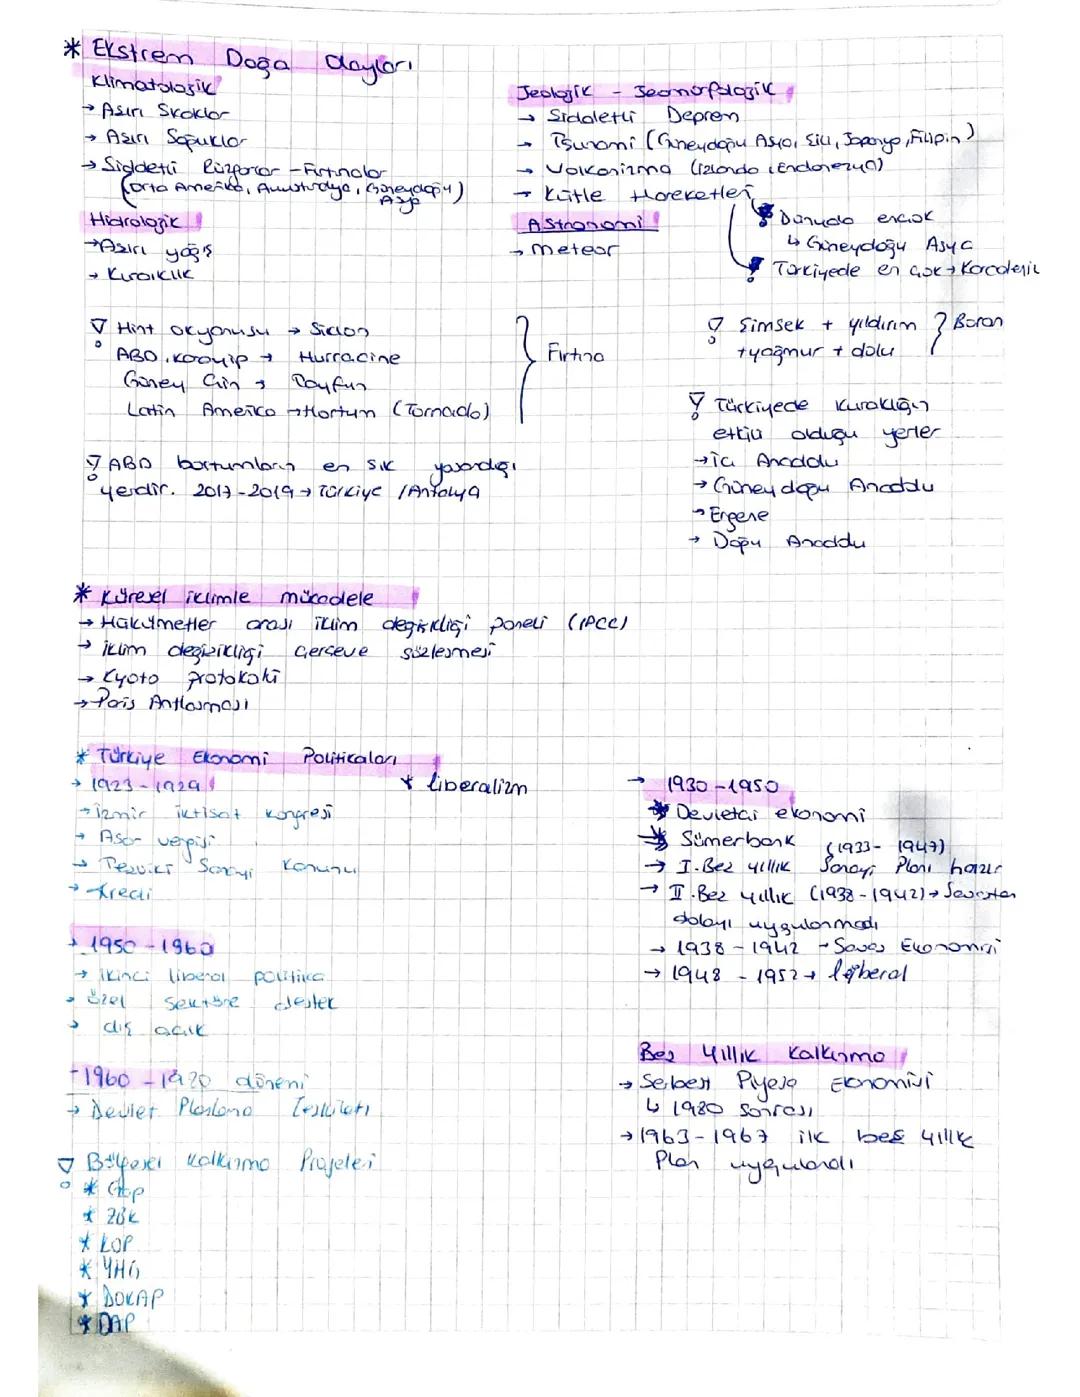 * Ekstrem Doğa Olayları
Klimatolojik
→ Aşırı Sıcaklar
→ Aşırı Soğuklar
→ Şiddetli Rüzgarlar - Fırtınalar
(Orta Amerika, Avustralya, Güneydoğu Asya)
Hidrolojik
→ Aşırı yağış
→ Kuraklık
Jeolojik - Jeomorfolojik
→ Şiddetli Deprem
→ Tsunami (Güneydoğu Asya, Şili, Japonya, Filipin)
→ Volkanizma (İzlanda, Endonezya)
→ Kütle Hareketleri
Dünyada en çok
↳ Güneydoğu Asya
Türkiyede en çok → Karadeniz
Astronomi
→ Meteor
Hint okyanusu → Siklon
ABD, Karayip → Hurracine
Güney Çin → Tayfun
Latin Amerika → Hortum (Tornado)
Fırtına
ABD hortumların en sık yaşandığı
yerdir. 2017-2019 → Türkiye / Antalya
Şimşek + yıldırım
+ yağmur + dolu
Boran
Türkiyede kuraklığın
etkili olduğu yerler
→ İç Anadolu
→ Güneydoğu Anadolu
→ Ergene
→ Doğu Anadolu
* Küresel iklimle mücadele
→ Hükümetler arası iklim değişikliği paneli (IPCC)
→ iklim değişikliği çerçeve sözleşmesi
→ Kyoto protokolü
→ Paris Antlaşması
* Türkiye Ekonomi Politikaları
→ 1923-1929
* liberalizm
→ İzmir iktisat kongresi
→ Aşar vergisi
→ Teşviki Sanayi Kanunu
→ Kredi
→ 1950-1960
→ ikinci liberal politika
→ özel sektöre destek
→ dış açık
→ 1930-1950
* Devletçi ekonomi
* Sümerbank
(1933-1947)
→ I. Beş yıllık Sanayi Planı hazır
→ II. Beş yıllık (1938-1942) → Savaştan
dolayı uygulanmadı
→ 1938-1942 → Savaş Ekonomisi
→ 1948-1952 → liberal
- 1960-1980 dönemi
→ Devlet Planlama Teşkilatı
Beş Yıllık Kalkınma
→ Serbest Piyasa Ekonomisi
↳ 1980 sonrası
→ 1963-1967 ilk beş yıllık
Plan uygulandı
Bölgesel Kalkınma Projeleri
* Gap
* ZBK
* KOP
* YHG
* DOKAP
* DAP